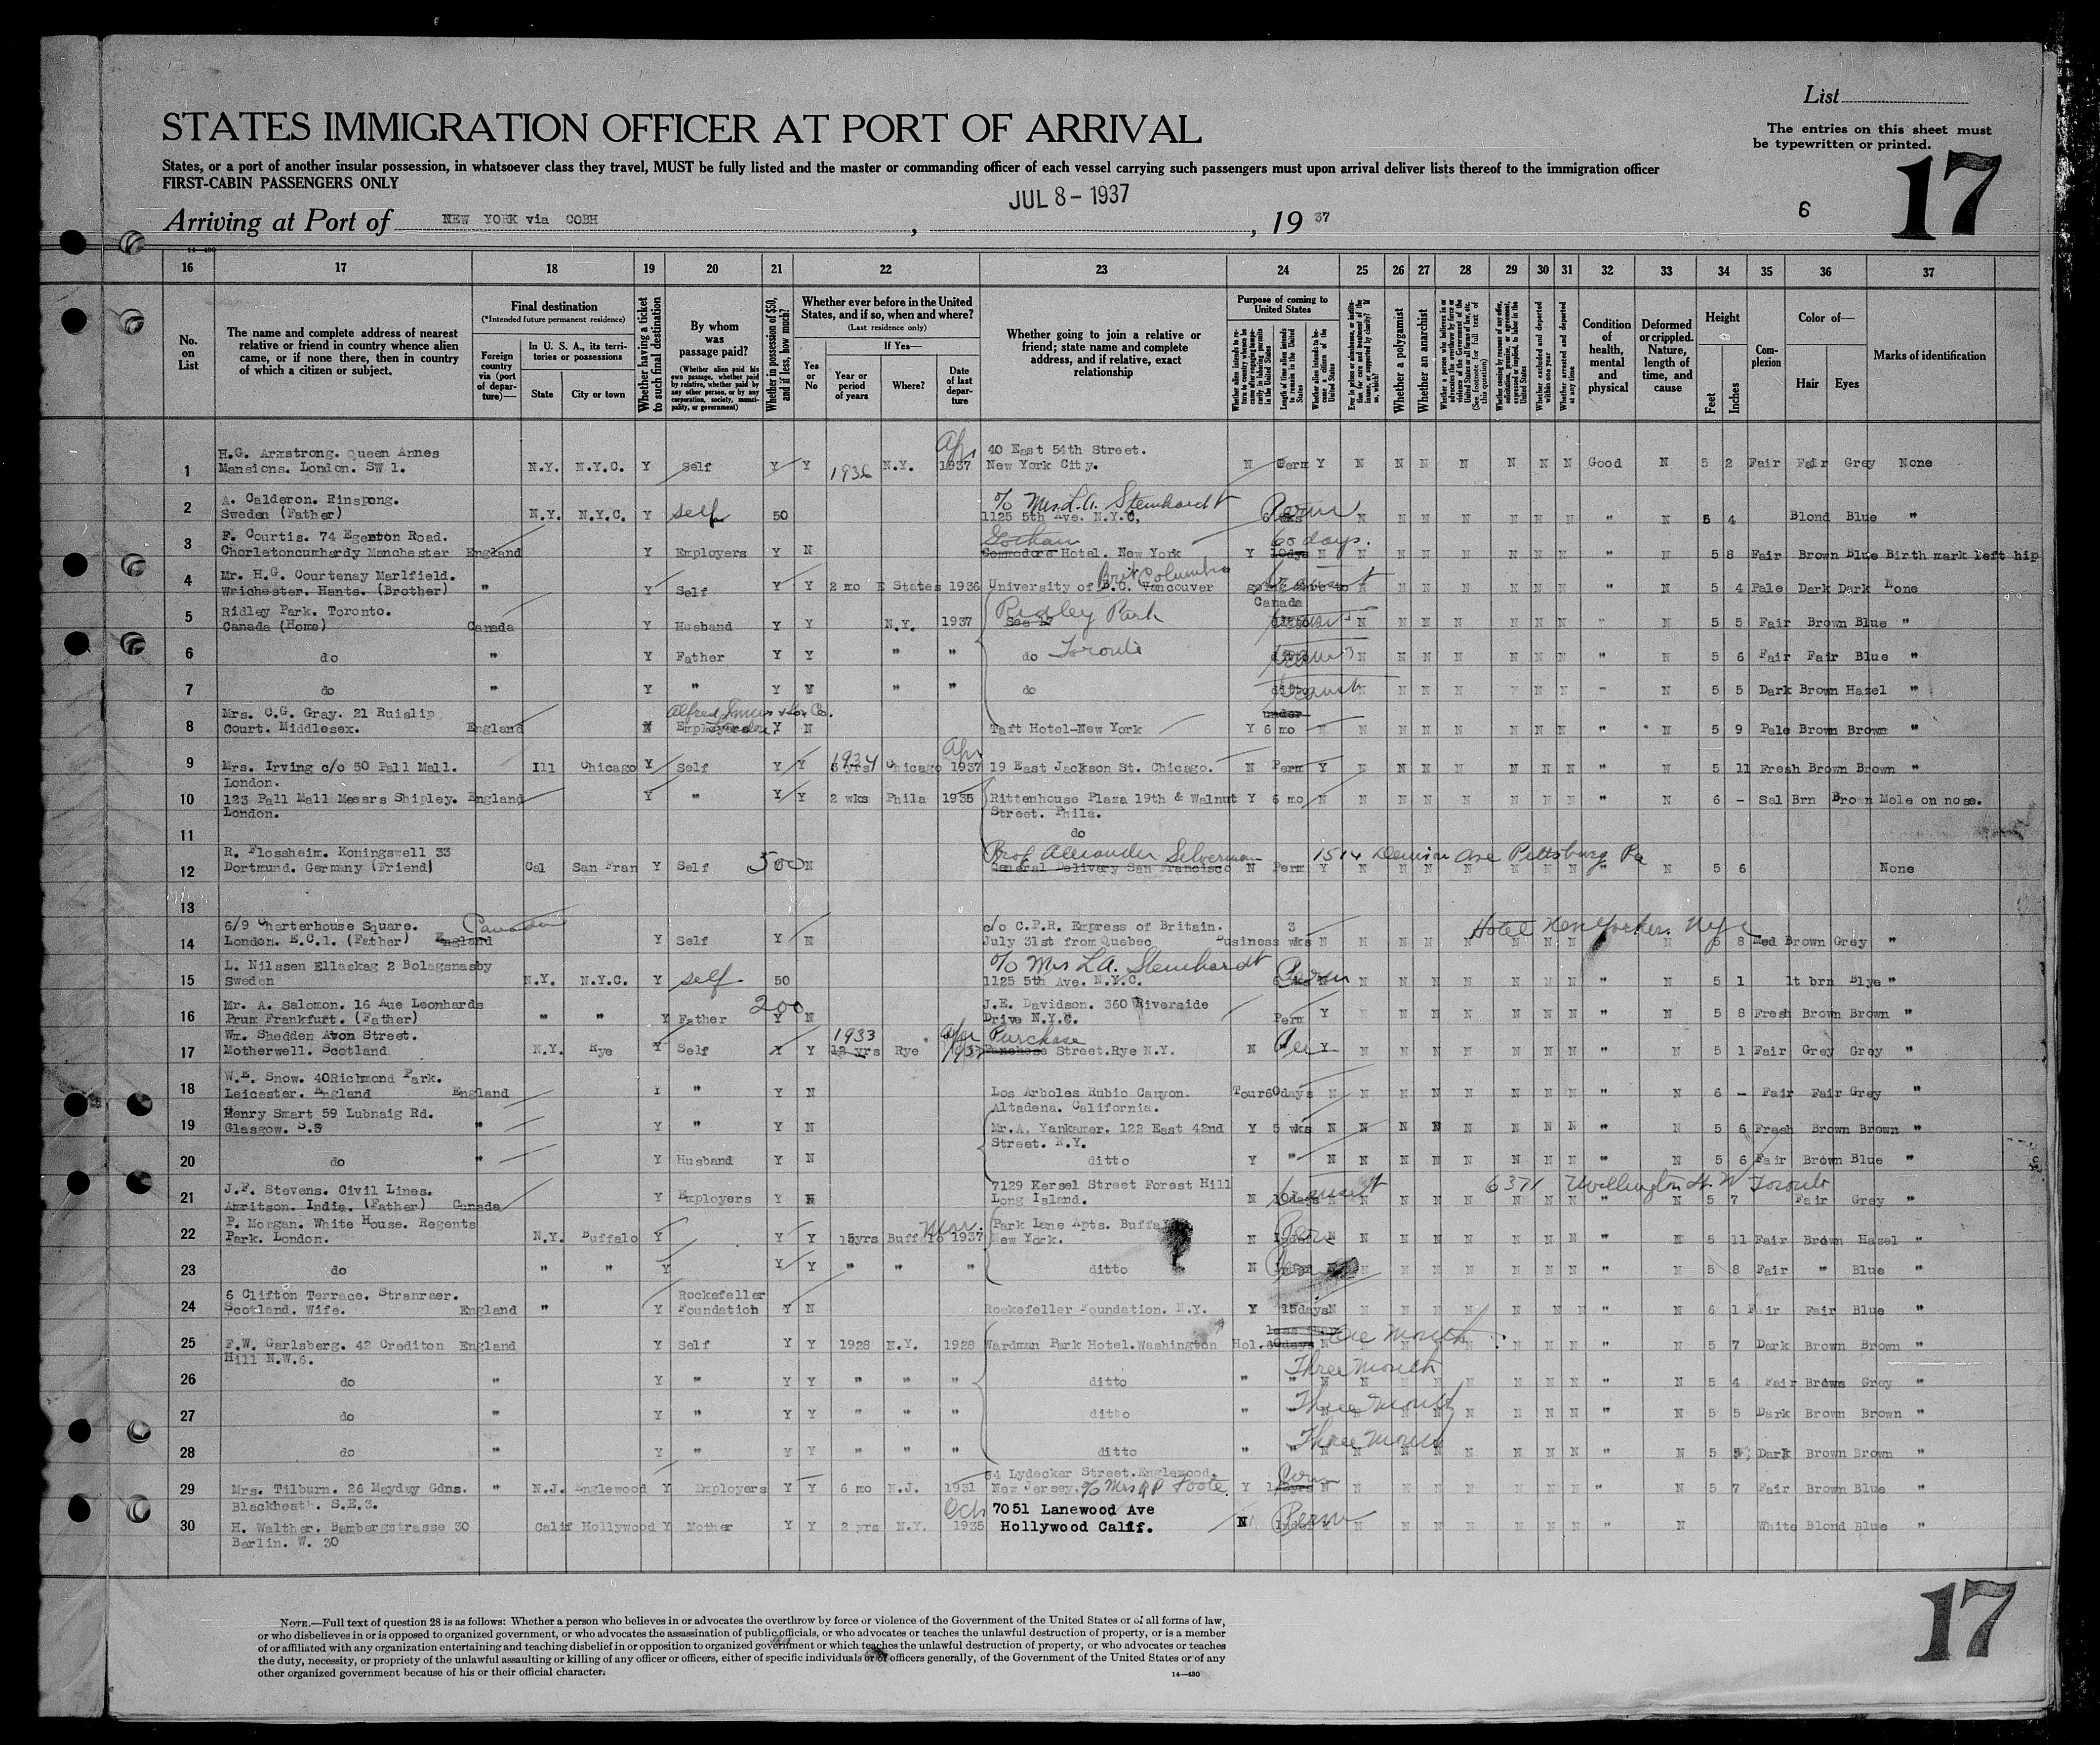 List
STATES IMMIGRATION OFFICER AT PORT OF ARRIVAL
The entries on this sheet must
be typewritten or printed.
States, or a port of another insular possession, in whatsoever class they travel, MUST be fully listed and the master or commanding officer of each vessel carrying such passengers must upon arrival deliver lists thereof to the immigration officer
FIRST-CABIN PASSENGERS ONLY
17
JUL 8 - 1937
6
Arriving at Port of NEW YORK via COBH , , 19 37
16 17 18 19 20 21 22 23 24 25 26 27 28 29 30 31 32 33 34 35 36 37
No. on List
The name and complete address of nearest relative or friend in country whence alien came, or if none there, then in country of which a citizen or subject.
Final destination
(*Intended future permanent residence)
Foreign country via (port of departure)—
In U. S. A., its territories or possessions
State
City or town
Whether having a ticket to such final destination
By whom was passage paid?
(Whether alien paid his own passage, whether paid by relative, whether paid by any other person, or by any corporation, society, municipality, or government)
Whether in possession of $50, and if less, how much?
Whether ever before in the United States, and if so, when and where?
(Last residence only)
Yes or No
If Yes—
Year or period of years
Where?
Date of last departure
Whether going to join a relative or friend; state name and complete address, and if relative, exact relationship
Purpose of coming to United States
Length of time alien intends to remain in the United States
Whether alien intends to become a citizen of the United States
Whether a polygamist
Whether an anarchist
Condition of health, mental and physical
Deformed or crippled. Nature, length of time, and cause
Height
Feet
Inches
Complexion
Color of—
Hair
Eyes
Marks of identification
1 H.G. Armstrong. Queen Annes Mansions. London. SW 1. N.Y. N.Y.C. Y Self Y Y 1936 N.Y. Apr 1937 40 East 54th Street. New York City. N Perm Y N N N N N N N Good N 5 2 Fair Fair Grey None
2 A. Calderon. Rinspong. Sweden (Father) N.Y. N.Y.C. Y Self 50 c/o Mrs. L.A. Steinhardt 1125 5th Ave. N.Y.C. 6 wks Perm N N N N N N N " N 5 4 Blond Blue "
3 F. Curtis. 74 Egerton Road. Chorletoncumhardy Manchester England Y Employers Y N Gotham Commodore Hotel. New York Y 10dys 60 days. N N N N N N N N " N 5 8 Fair Brown Blue Birth mark left hip
4 Mr. H.G. Courtenay Marlfield. Wrichester. Hants. (Brother) " Y Self Y Y 2 mo E States 1936 University of B.C. Vancouver Brit Columbia Transit Canada N N N N N N N " N 5 4 Pale Dark Dark None
5 Ridley Park. Toronto. Canada (Home) Canada Y Husband Y Y N.Y. 1937 See 17 Ridley Park Transit N N N N N N N " N 5 5 Fair Brown Blue "
6 do " Y Father Y Y " " do Toronto ditto Transit N N N N N N N " N 5 6 Fair Fair Blue "
7 do " Y " Y N " " do ditto Transit N N N N N N N " N 5 5 Dark Brown Hazel "
8 Mrs. C.G. Gray. 21 Ruislip Court. Middlesex. England N Employers Y N Taft Hotel-New York Y under 6 mo N N N N N N N N " N 5 9 Pale Brown Brown "
9 Mrs. Irving c/o 50 Pall Mall. London. Ill Chicago Y Self Y Y 6 yrs 1934 Chicago Apr 1937 19 East Jackson St. Chicago. N Perm Y N N N N N N N " N 5 11 Fresh Brown Brown "
10 123 Pall Mall Messrs Shipley. London. England Y " Y Y 2 wks Phila 1935 Rittenhouse Plaza 19th & Walnut Street. Phila. Y 6 mo N N N N N N N N " N 6 - Sal Brn Brown Mole on nose.
11 do
12 R. Flossheim. Koningswell 33 Dortmund. Germany (Friend) Cal San Fran Y Self 500 N Prof Alexander Silverman 1514 Denison Ave Pittsburg. Pa General Delivery San Francisco N Perm Y N N N N N N N " N 5 6 None
13
14 6/9 Charterhouse Square. London. E.C.1. (Father) England Canada Y Self Y N c/o C.P.R. Express of Britain. July 31st from Quebec Business 3 wks N N N N N N N N Hotel New Yorker. NYC N 5 8 Med Brown Grey "
15 L. Nilssen Ellaskag 2 Bolagsnasby Sweden N.Y. N.Y.C. Y Self 50 c/o Mrs L.A. Steinhardt 1125 5th Ave. N.Y.C. Perm N N N N N N N " N 5 1 lt brn Blye "
16 Mr. A. Salomon. 16 Aue Leonhards Prum Frankfurt. (Father) " " Y Father 200 Y N J.E. Davidson. 360 Riverside Drive N.Y.C. Perm Y N N N N N N N " N 5 8 Fresh Brown Brown "
17 Wm. Shedden Aton Street. Motherwell. Scotland N.Y. Rye Y Self Y Y 12 yrs 1933 Rye Apr 1937 Purchase Street.Rye N.Y. N Per Y N N N N N N N " N 5 1 Fair Grey Grey "
18 W.E. Snow. 40Richmond Park. Leicester. England England Y " Y N Los Arboles Rubio Canyon. Altadena. California. Tour 60days N N N N N N N N " N 6 - Fair Fair Grey "
19 Henry Smart 59 Lubnaig Rd. Glasgow. S.S " Y " Y N Mr.A. Yankamer. 122 East 42nd Street. N.Y. Y 5 wks N N N N N N N N " N 5 6 Fresh Brown Brown "
20 do " Y Husband Y N ditto Y " N N N N N N N N " N 5 6 Fair Brown Blue "
21 J.F. Stevens. Civil Lines. Amritson. India. (Father) Canada Y Employers Y N 7129 Kersel Street Forest Hill Long Island. N 10days Transit N N N N N N N 6371 Wellington St. W Toronto " N 5 7 Fair Grey "
22 P. Morgan. White House. Regents Park. London. N.Y. Buffalo Y Y Y 15yrs Buffalo Mar. 1937 Park Lane Apts. Buffalo New York. N Perm N N N N N N N " N 5 11 Fair Brown Hazel "
23 do " " Y Y Y " " " ditto N Perm N N N N N N N " N 5 8 Fair " Blue "
24 6 Clifton Terrace. Stranraer. Scotland. Wife. England " Y Rockefeller Foundation Y N Rockefeller Foundation. N.Y. Y 15days N N N N N N N N " N 6 1 Fair Fair Blue "
25 F.W. Garlsberg. 42 Crediton Hill N.W.6. England Y Self Y Y 1928 N.Y. 1928 Wardman Park Hotel.Washington Hol. less than 60days One month N N N N N N N " N 5 7 Dark Brown Brown "
26 do " Y " Y Y " " " ditto " " Three month N N N N N N N " N 5 4 Fair Brown Grey "
27 do " Y " Y Y " " " ditto " " Three month N N N N N N N " N 5 5 Dark Brown Brown "
28 do " Y " Y Y " " " ditto " " Three month N N N N N N N " N 5 5 Dark Brown Brown "
29 Mrs. Tilburn. 26 Mayday Gdns. Blackheath. S.E.3. " N.J. Englewood Y Employers Y Y 6 mo N.J. 1931 54 Lydecker Street.Englewood. New Jersey. c/o Mrs R P Foote Y Perm N N N N N N N N " N 5 7 Fair Brown Blue "
30 H. Walther. Bambergstrasse 30 Berlin. W. 30 Calif Hollywood Y Mother Y Y 2 yrs N.Y. Oct 1935 7051 Lanewood Ave Hollywood Calif. N Perm Y N N N N N N N " N White Blond Blue "
17
NOTE.—Full text of question 28 is as follows: Whether a person who believes in or advocates the overthrow by force or violence of the Government of the United States or of all forms of law,
or who disbelieves in or is opposed to organized government, or who advocates the assassination of public officials, or who advocates or teaches the unlawful destruction of property, or is a member
of or affiliated with any organization entertaining and teaching disbelief in or opposition to organized government or which teaches the unlawful destruction of property, or who advocates or teaches
the duty, necessity, or propriety of the unlawful assaulting or killing of any officer or officers, either of specific individuals or of officers generally, of the Government of the United States or of any
other organized government because of his or their official character.
14—430